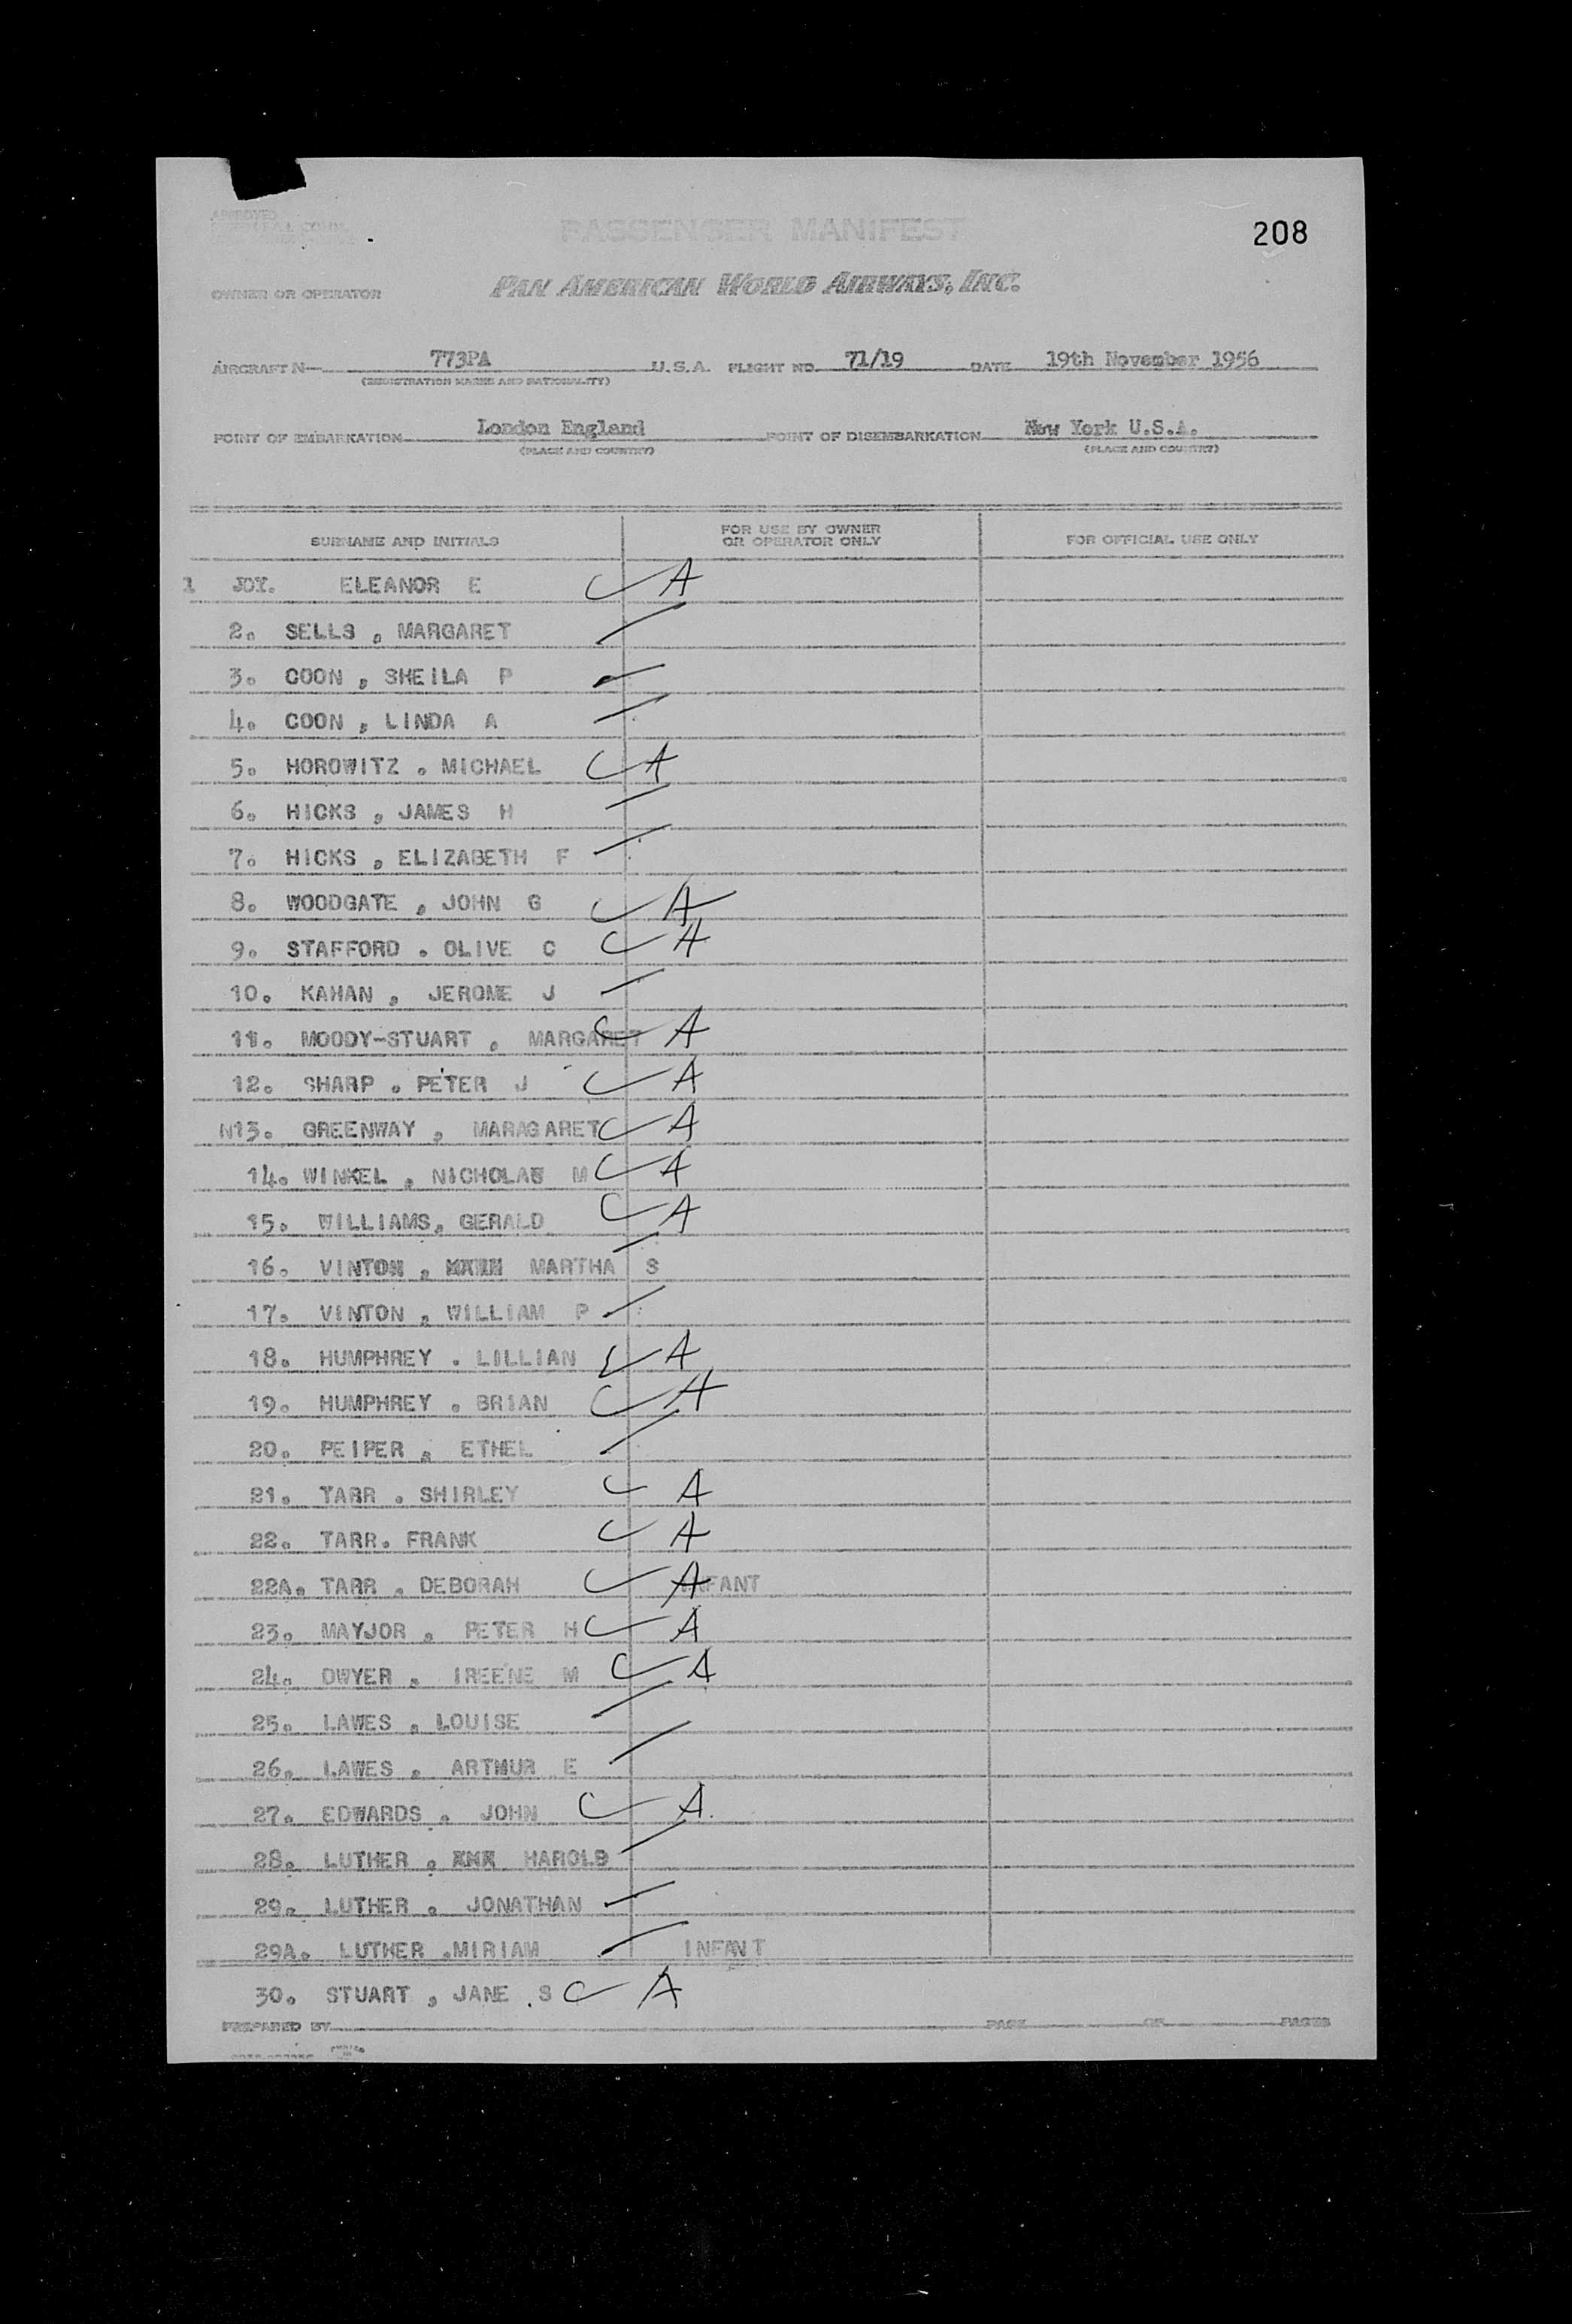 APPROVED
PASSENGER MANIFEST
208
OWNER OR OPERATOR PAN AMERICAN WORLD AIRWAYS, INC.
AIRCRAFT N— 773PA U.S.A. FLIGHT NO. 71/19 DATE 19th November 1956
(REGISTRATION MARKS AND NATIONALITY)
POINT OF EMBARKATION London England POINT OF DISEMBARKATION New York U.S.A.
(PLACE AND COUNTRY) (PLACE AND COUNTRY)
SURNAME AND INITIALS FOR USE BY OWNER OR OPERATOR ONLY FOR OFFICIAL USE ONLY
1 JOY. ELEANOR E A
2. SELLS , MARGARET
3. COON , SHEILA P
4. COON , LINDA A
5. HOROWITZ . MICHAEL A
6. HICKS , JAMES H
7. HICKS , ELIZABETH F
8. WOODGATE , JOHN G A
9. STAFFORD . OLIVE C A
10. KAHAN , JEROME J
11. MOODY-STUART , MARGARET A
12. SHARP . PETER J A
N13. GREENWAY , MARAGARET A
14. WINKEL , NICHOLAS M A
15. WILLIAMS, GERALD A
16. VINTON , MARTHA S
17. VINTON , WILLIAM P
18. HUMPHREY . LILLIAN A
19. HUMPHREY . BRIAN A
20. PEIPER , ETHEL
21. TARR . SHIRLEY A
22. TARR. FRANK A
22A. TARR . DEBORAH A INFANT
23. MAYJOR , PETER H A
24. DWYER , IREENE M A
25. LAWES , LOUISE
26. LAWES , ARTHUR E
27. EDWARDS . JOHN A
28. LUTHER , HAROLD
29. LUTHER . JONATHAN
29A. LUTHER .MIRIAM INFANT
30. STUART , JANE .S A
PREPARED BY PAGE OF PAGES